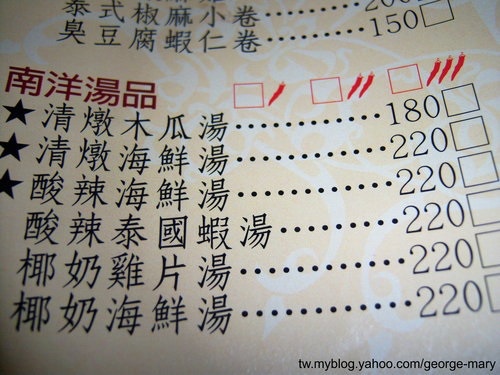 泰式椒麻小卷
臭豆腐蝦仁卷 150
南洋湯品
★清燉木瓜湯 180
★清燉海鮮湯 220
★酸辣海鮮湯 220
酸辣泰國蝦湯 220
椰奶雞片湯 220
椰奶海鮮湯 220
tw.myblog.yahoo.com/george-mary